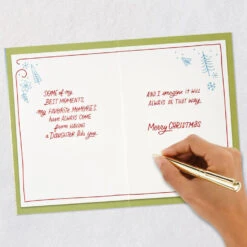 SOME of my
BEST MOMENTS,
my FAVORITE MEMORIES,
have ALWAYS COME
from having
a DAUGHTER like you.
AND I imagine it will
ALWAYS be THAT way.
Merry CHRISTMAS